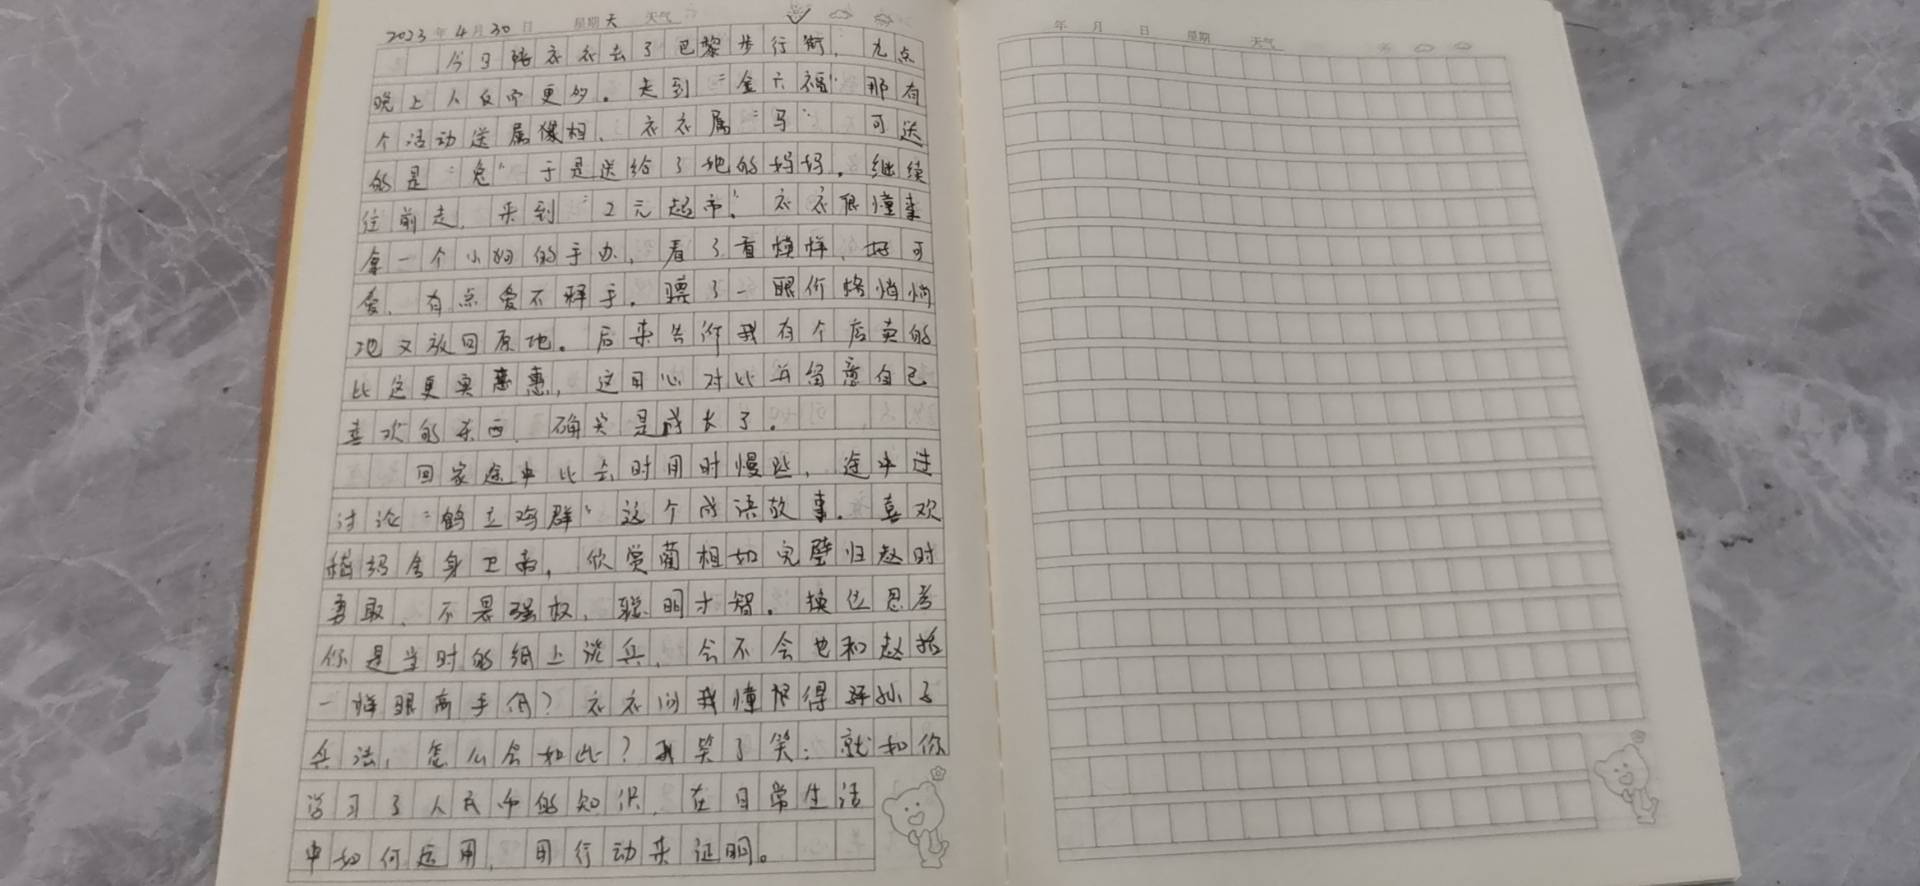 2023年4月30日 星期天 天气
今日陪衣衣去了巴黎步行街，九点
晚上人反而更多。走到“金六福”那有
个活动送属像相、衣衣属“马” 可送
的是“兔”于是送给了她的妈妈。继续
往前走，来到“2元超市”，衣衣很懂事
拿一个小狗的手办，看了看模样，好可
爱、有点爱不释手。瞟了一眼价格悄悄
地又放回原地。后来告诉我有个店卖的
比这更实惠，这用心对比并留意自己
喜欢的东西、确实是成长了。
回家途中比去时用时慢些，途中进
讨论“鹤立鸡群”这个成语故事。喜欢
嵇绍舍身卫帝，欣赏蔺相如完璧归赵时
勇敢、不畏强权，聪明才智。换位思考
你是当时的纸上谈兵，会不会也和赵括
一样眼高手低？衣衣问我懂得孙子
兵法，怎么会如此？我笑了笑：就和你
学习了人民币的知识，在日常生活
中如何运用，用行动来证明。
年 月 日 星期 天气